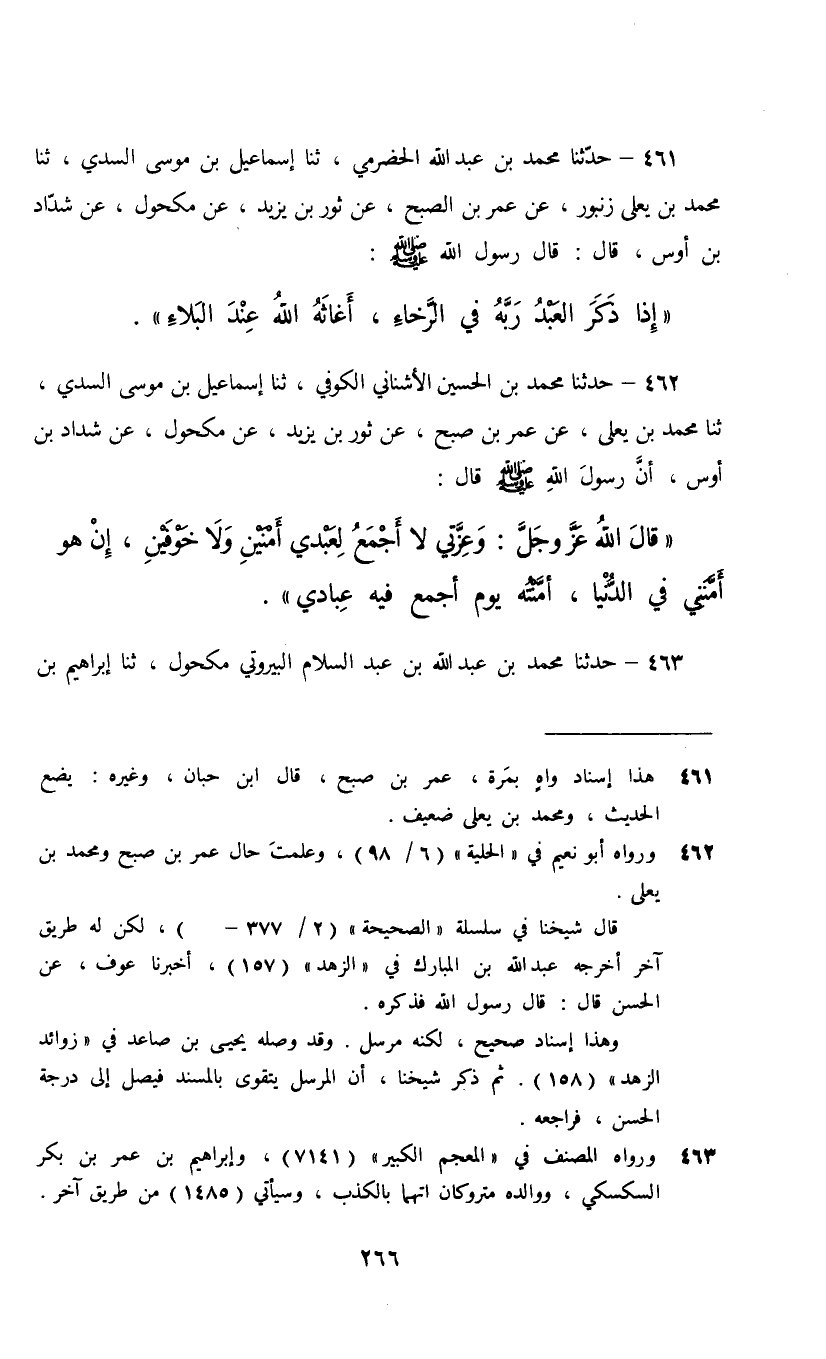 ٤٦١ – حدّثنا محمد بن عبد الله الحضرمي ، ثنا إسماعيل بن موسى السدي ، ثنا
محمد بن يعلى زنبور ، عن عمر بن الصبح ، عن ثور بن يزيد ، عن مكحول ، عن شدّاد
بن أوس ، قال : قال رسول الله ﷺ :
« إِذا ذَكَرَ العَبْدُ رَبَّهُ في الرَّخاءِ ، أَغاثَهُ اللهُ عِنْدَ البَلاءِ » .
٤٦٢ – حدثنا محمد بن الحسين الأشناني الكوفي ، ثنا إسماعيل بن موسى السدي ،
ثنا محمد بن يعلى ، عن عمر بن صبح ، عن ثور بن يزيد ، عن مكحول ، عن شداد بن
أوس ، أنَّ رسولَ اللهِ ﷺ قال :
« قالَ اللهُ عَزَّ وجَلَّ : وَعِزَّتي لا أَجْمَعُ لِعَبْدي أَمْنَيْنِ وَلَا خَوْفَيْنِ ، إِنْ هو
أَمَّنَني في الدُّنْيا ، أمَّنْتُه يوم أجمع فيه عِبادي » .
٤٦٣ – حدثنا محمد بن عبد الله بن عبد السلام البيروتي مكحول ، ثنا إبراهيم بن
٤٦١ هذا إسناد واهٍ بمَرة ، عمر بن صبح ، قال ابن حبان ، وغيره : يضع
الحديث ، ومحمد بن يعلى ضعيف .
٤٦٢ ورواه أبو نعيم في « الحلية » ( ٦ / ٩٨ ) ، وعلمتَ حال عمر بن صبح ومحمد بن
يعلى .
قال شيخنا في سلسلة « الصحيحة » ( ٢ / ٣٧٧ – ) ، لكن له طريق
آخر أخرجه عبد الله بن المبارك في « الزهد » ( ١٥٧ ) ، أخبرنا عوف ، عن
الحسن قال : قال رسول الله فذكره .
وهذا إسناد صحيح ، لكنه مرسل . وقد وصله يحيى بن صاعد في « زوائد
الزهد » ( ١٥٨ ) . ثم ذكر شيخنا ، أن المرسل يتقوى بالمسند فيصل إلى درجة
الحسن ، فراجعه .
٤٦٣ ورواه المصنف في « المعجم الكبير » ( ٧١٤١ ) ، وإبراهيم بن عمر بن بكر
السكسكي ، ووالده متروكان اتهما بالكذب ، وسيأتي ( ١٤٨٥ ) من طريق آخر .
٢٦٦